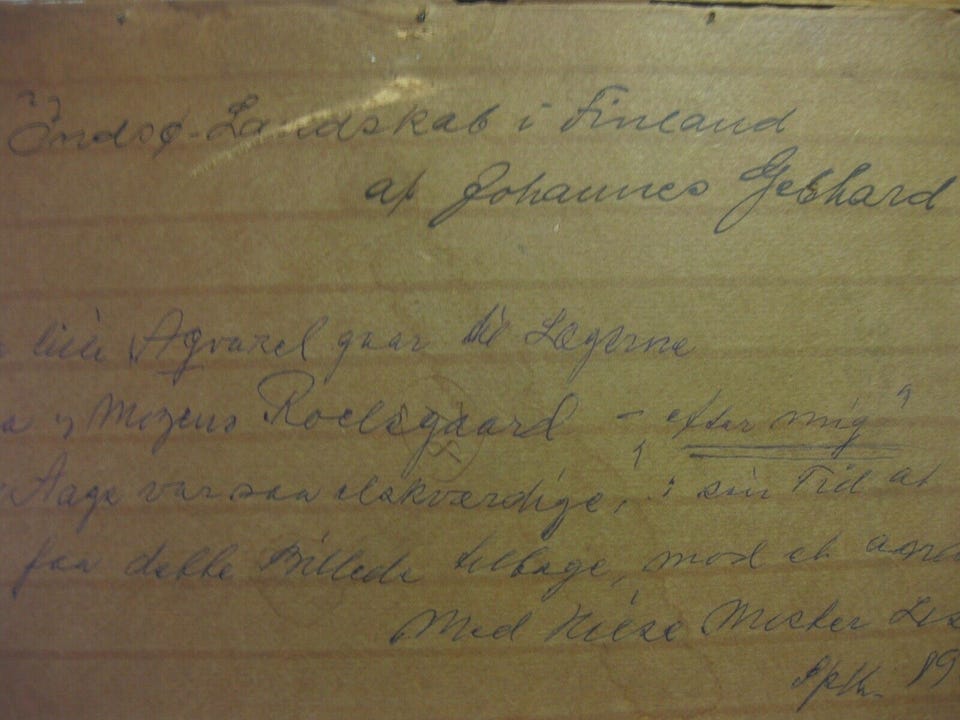 Indsø-Landskab i Finland
af Johannes Gebhard
lille Aqvarel gaar til Lægerne
Mogens Roelsgaard - efter mig
Aage var saa elskværdige, i sin Tid at
faa dette Billede tilbage, mod et
Med Hilsen Moster